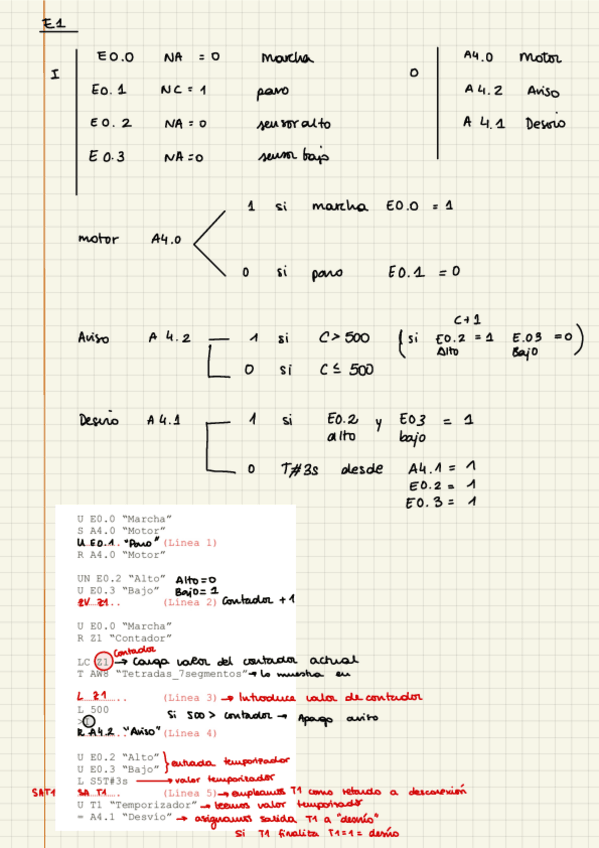 E1
I
E0.0 NA = 0 marcha
E0.1 NC = 1 paro
E0.2 NA = 0 sensor alto
E0.3 NA = 0 sensor bajo
O
A4.0 Motor
A4.2 Aviso
A 4.1 Desvio
motor A4.0
1 si marcha E0.0 = 1
0 si paro E0.1 = 0
Aviso A 4.2 1 si C > 500
C+1
(si E0.2 = 1 E.03 = 0)
Alto Bajo
0 si C ≤ 500
Desvio A 4.1 1 si E0.2 y E03 = 1
alto bajo
0 T#3s desde A4.1 = 1
E0.2 = 1
E0.3 = 1
U E0.0 "Marcha"
S A4.0 "Motor"
U E0.1. "Paro" (Línea 1)
R A4.0 "Motor"
UN E0.2 "Alto" Alto=0
U E0.3 "Bajo" Bajo=1
ZV Z1... (Línea 2) Contador +1
U E0.0 "Marcha"
R Z1 "Contador"
Contador
LC Z1 → Carga valor del contador actual
T AW8 "Tetradas_7segmentos" → lo muestra en
L Z1...... (Línea 3) → Introduce valor de contador
L 500
>I
Si 500 > contador → Apago aviso
R A4.2 "Aviso" (Línea 4)
U E0.2 "Alto"
U E0.3 "Bajo"
entrada temporizador
L S5T#3s → valor temporizador
SA T1 SA T1.... (Línea 5) → empleamos T1 como retardo a desconexión
U T1 "Temporizador" → leemos valor temporizador
= A4.1 "Desvio" → asignamos salida T1 a "desvío"
Si T1 finaliza T1=1 = desvío